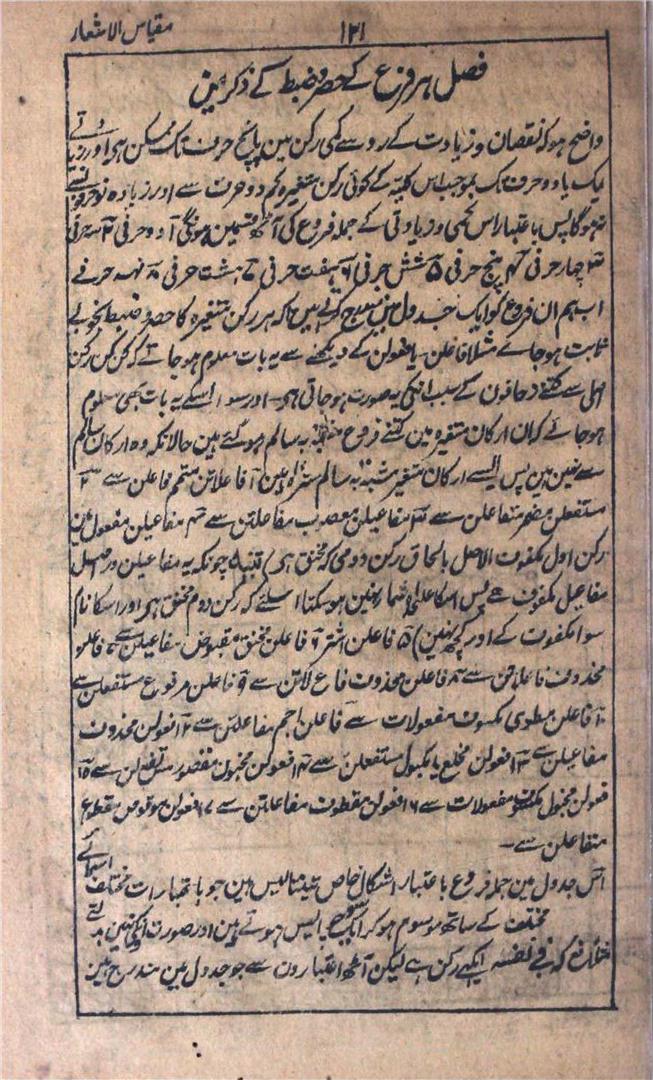 مقیاس الاشعار
۱۲۱
فصل ہر فرع کے حصر و ضبط کے ذکر مین
واضح ہو کہ نقصان و زیادت کے رو سے کمی رکن مین پانچ حرف تک ممکن ہی اور زیادتی
ایک یا دو حرف تک بموجب اس کلیہ کے کوئی رکن متغیرہ کم دو حرف سے اور زیادہ نو حرفونسے
نہوگا پس باعتبار اس کمی و زیادتی کے جملہ فروع کی آٹھ قسمین ہونگی ۱ دو حرفی ۲ سہ حرفی
۳ چہار حرفی ۴ پنج حرفی ۵ شش حرفی ۶ ہفت حرفی ۷ ہشت حرفی ۸ نہہ حرفے
اب ہم ان فروع کو ایک جدول مین درج کرتے ہین تاکہ ہر رکن متغیرہ کا حصر و ضبط بخوبے
ثابت ہو جائے مثلا فاعلن یا فعولن کے دیکھنے سے یہ بات معلوم ہو جائے کہ کن کن رکن
اصلی سے کتنے زحافون کے سبب انکی یہ صورت ہو جاتی ہی اور سوا اسکے یہ بات بھی معلوم
ہو جائے کہ ان ارکان متغیرہ مین کتنے فروع مشابہ بہ سالم ہو گئے ہین حالانکہ وہ ارکان سالم
سے نہین ہین پس ایسے ارکان متغیر مشبہ بہ سالم سترہ ہین ۱ فاعلاتن متمم فاعلن سے ۲
مستفعلن مضمر متفاعلن سے ۳ مفاعیلن معصوب مفاعلتن سے ۴ مفاعیلن مفعول مین
رکن اول مکفوف الاصل بالحاق رکن دومی کہ مخنق ہی (تنبیہ چونکہ یہ مفاعیلن در اصل
مفاعیل مکفوف ہے پس اسکا علیحدہ شمار نہین ہو سکتا اسلئے کہ رکن دوم مخنق ہی اور اسکا نام
سوا مکفوف کے اور کچھ نہین) ۵ فاعلن اشتر ۶ فاعلن مخنق مقبوض مفاعیلن سے ۷ فاعلن
محذوف فاعلاتن سے ۸ فاعلن محذوف فاع لاتن سے ۹ فاعلن مرفوع مستفعلن سے
۱۰ فاعلن مطوی مکسوف مفعولات سے ۱۱ فاعلن اجم مفاعلتن سے ۱۲ فعولن محذوف
مفاعیلن سے ۱۳ فعولن مخلع یا مکبول مستفعلن سے ۱۴ فعولن مخبول مقصور مستفع لن سے ۱۵
فعولن مخبول مکسوف مفعولات سے ۱۶ فعولن مقطوف مفاعلتن سے ۱۷ فعولن موقوص مقطوع
متفاعلن سے۔
اس جدول مین جملہ فروع باعتبار اشکال خاص مینتالیس ہین جو باعتبارات مختلف اسمائے
مختلف کے ساتھ موسوم ہو کر ایکسو چالیس ہوتے ہین اور صورت انکی نہین بدلتے
مثلا فع کہ فے نفسہ ایک رکن ہے لیکن آٹھ اعتبارون سے جو جدول مین مندرج ہین